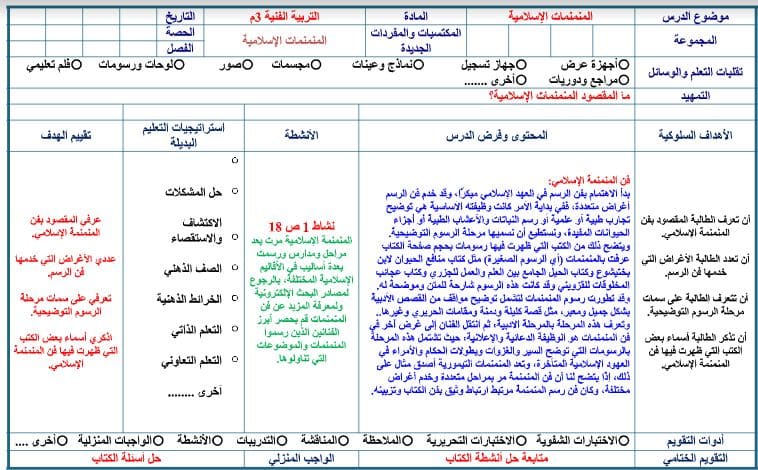 موضوع الدرس
المنمنمات الإسلامية
المادة
التربية الفنية 3م
التاريخ
المجموعة
المكتسبات والمفردات
الجديدة
المنمنمات الإسلامية
الحصة
الفصل
تقليات التعلم والوسائل
أجهزة عرض
جهاز تسجيل
نماذج وعينات
مجسمات
صور
لوحات ورسومات
فلم تعليمي
مراجع ودوريات
أخرى ........
التمهيد
ما المقصود المنمنمات الإسلامية؟
الأهداف السلوكية
المحتوى وفرض الدرس
الأنشطة
أستراتيجيات التعليم
البديلة
تقييم الهدف
أن تعرف الطالبة المقصود بفن
المنمنمة الإسلامي.
أن تعدد الطالبة الأغراض التي
خدمها فن الرسم.
أن تتعرف الطالبة على سمات
مرحلة الرسوم التوضيحية.
أن تذكر الطالبة أسماء بعض
الكتب التي ظهرت فيها فن
المنمنمة الإسلامي.
فن المنمنمة الإسلامي:
بدأ الاهتمام بفن الرسم في العهد الإسلامي مبكرًا، وقد خدم فن الرسم
أغراض متعددة، ففي بداية الأمر كانت وظيفته الاساسية هي توضيح
تجارب طبية أو علمية أو رسم النباتات والأعشاب الطبية أو أجزاء
الحيوانات المفيدة، ونستطيع أن نسميها مرحلة الرسوم التوضيحية.
ويتضح ذلك من الكتب التي ظهرت فيها رسومات بحجم صفحة الكتاب
عرفت بالمنمنمات (أي الرسوم الصغيرة) مثل كتاب منافع الحيوان لابن
بختيشوع وكتاب الحيل الجامع بين العلم والعمل للجزري وكتاب عجائب
المخلوقات للقزويني وقد كانت هذه الرسوم شارحة للمتن وموضحة له.
وقد تطورت رسوم المنمنمات لتشمل توضيح مواقف من القصص الأدبية
بشكل جميل ومعبر، مثل قصة كليلة ودمنة ومقامات الحريري وغيرها..
وتعرف هذه المرحلة بالمرحلة الادبية، ثم انتقل الفنان إلى غرض آخر في
فن المنمنمات هو الوظيفة الدعائية والإعلانية، حيث تشتمل هذه المرحلة
بالرسومات التي توضح السير والغزوات وبطولات الحكام والأمراء في
العهود الإسلامية المتأخرة، وتعد المنمنمات التيمورية أصدق مثال على
ذلك، إذا يتضح لنا أن فن المنمنمة مر بمراحل متعددة وخدم أغراض
مختلفة، وكان فن رسم المنمنمة مرتبط ارتباط وثيق بفن الكتاب وتزيينه.
نشاط 1 ص 18
المنمنمة الإسلامية مرت بعد
مراحل ومدارس ورسمت
بعدة أساليب في الأقاليم
الإسلامية المختلفة، بالرجوع
لمصادر البحث الإلكترونية
ولمعرفة المزيد عن فن
المنمنمات قم بحصر أبرز
الفنانين الذين رسموا
المنمنمات والموضوعات
التي تناولوها.
حل المشكلات
الاكتشاف
والاستقصاء
الصف الذهني
الخرائط الذهنية
التعلم الذاتي
التعلم التعاوني
أخرى ........
عرفي المقصود بفن
المنمنمة الإسلامي.
عددي الأغراض التي خدمها
فن الرسم.
تعرفي على سمات مرحلة
الرسوم التوضيحية.
اذكري أسماء بعض الكتب
التي ظهرت فيها فن المنمنمة
الإسلامي.
أدوات التقويم
الاختبارات الشفوية
الاختبارات التحريرية
الملاحظة
المناقشة
التدريبات
الأنشطة
الواجبات المنزلية
أخرى ....
التقويم الختامي
متابعة حل أنشطة الكتاب
الواجب المنزلي
حل أسئلة الكتاب